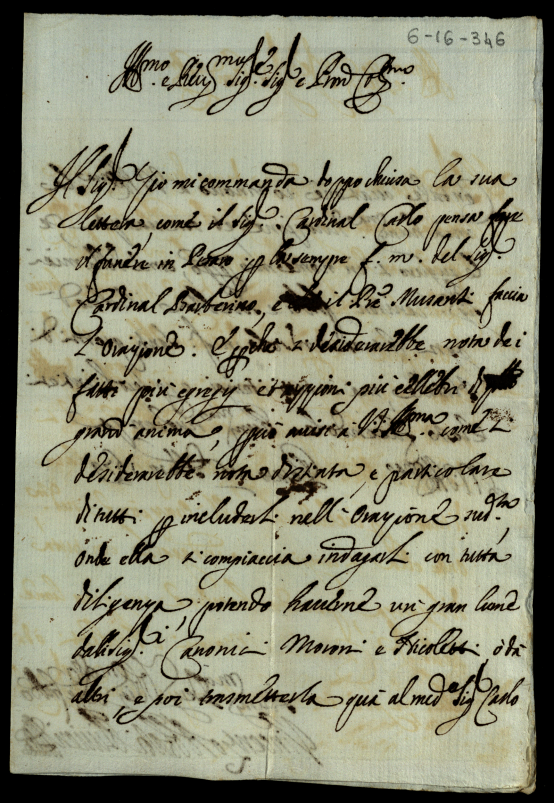 6-16-346
Ill.mo e Rev.mo Sig.r Sig.r e Pron Col.mo
Il Sig.r Gio mi commanda doppo chiusa la sua
lettera, come il Sig.r Cardinal Carlo pensa fare
il funere in Pesaro p la sempre f. m. del Sig.r
Cardinal Barberino, e il Pre Musanti faccia
l'Orazione. E pche si desiderarebbe nota de i
fatti più egregij et azzioni più celebri di
grand'anima, p ciò avisi à V. S. Ill.ma come si
desiderarebbe nota distinta, e particolare
di tutti p includerli nell'Orazione sud.ta,
onde ella si compiaccia indagarli con tutta
diligenza, potendo haverne un gran lume
dalli Sig.ri Canonici Moroni e Nicoletti ò da
altri, e poi trasmetterla quà al med.o Sig.r Carlo